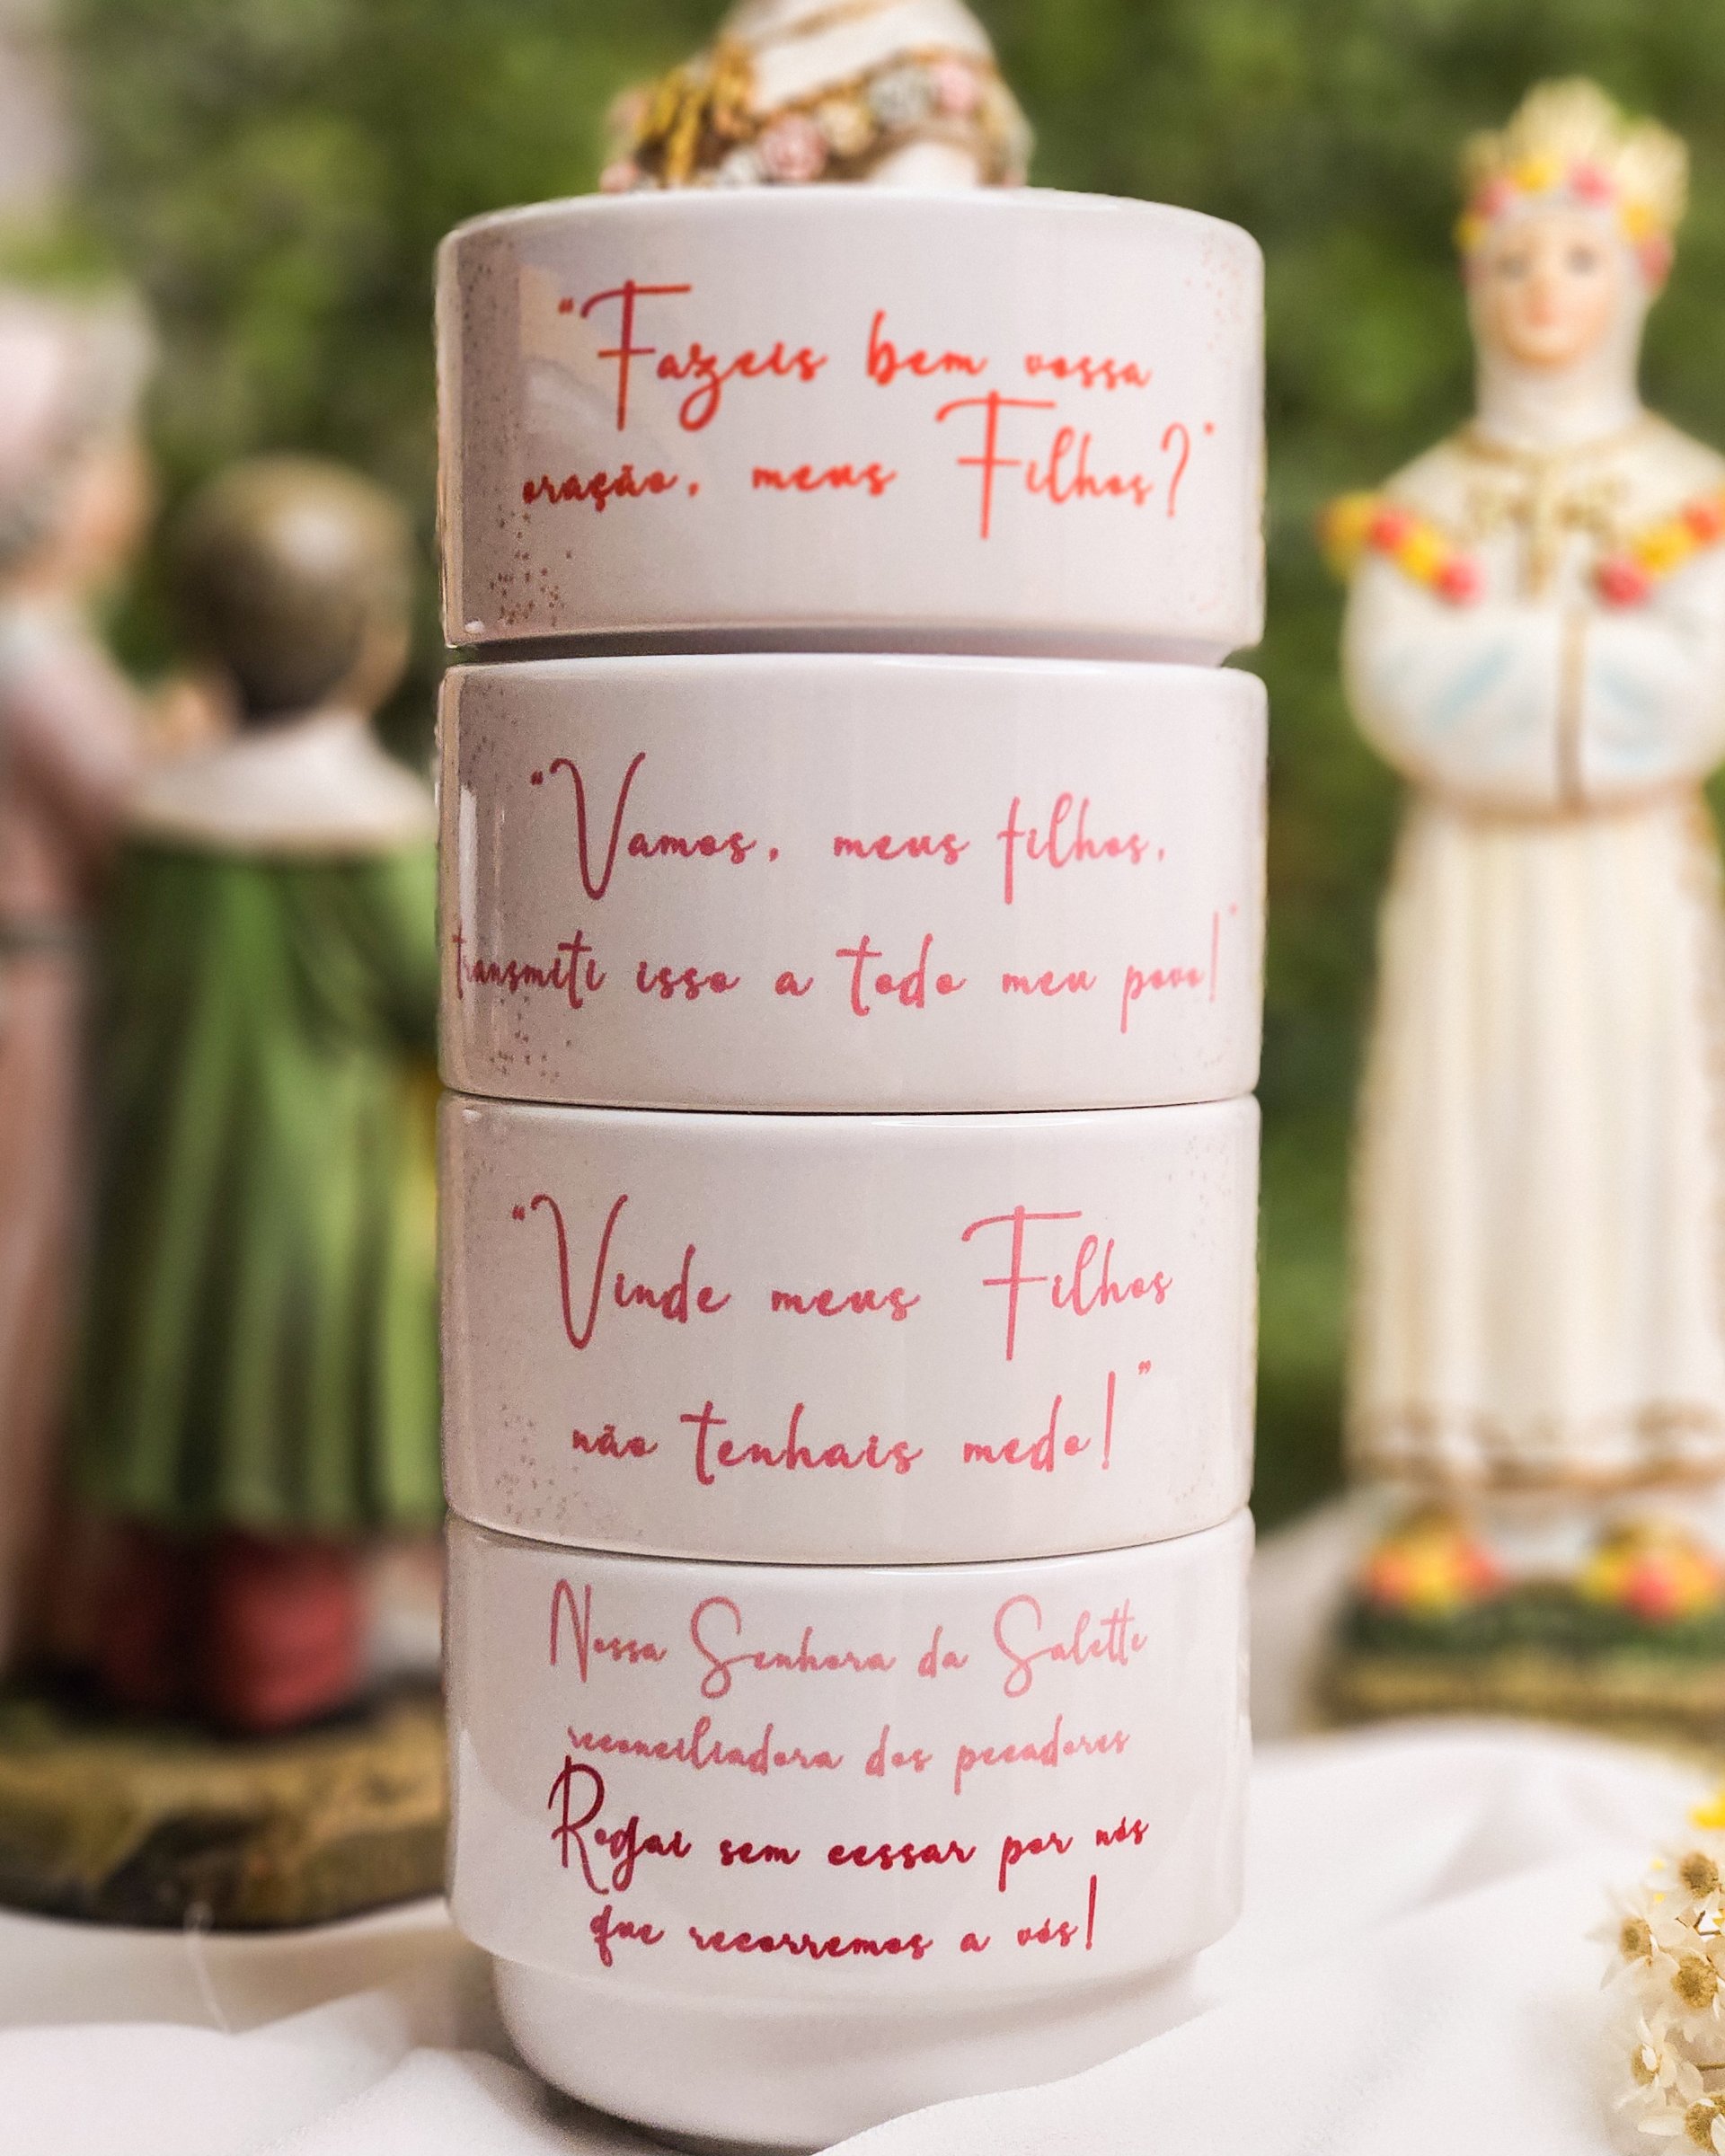 “Fazeis bem vossa
oração, meus Filhos?”
“Vamos, meus filhos,
transmiti isso a todo meu povo!”
“Vinde meus Filhos
não tenhais medo!”
Nossa Senhora da Salette
reconciliadora dos pecadores
Rogai sem cessar por nós
que recorremos a vós!